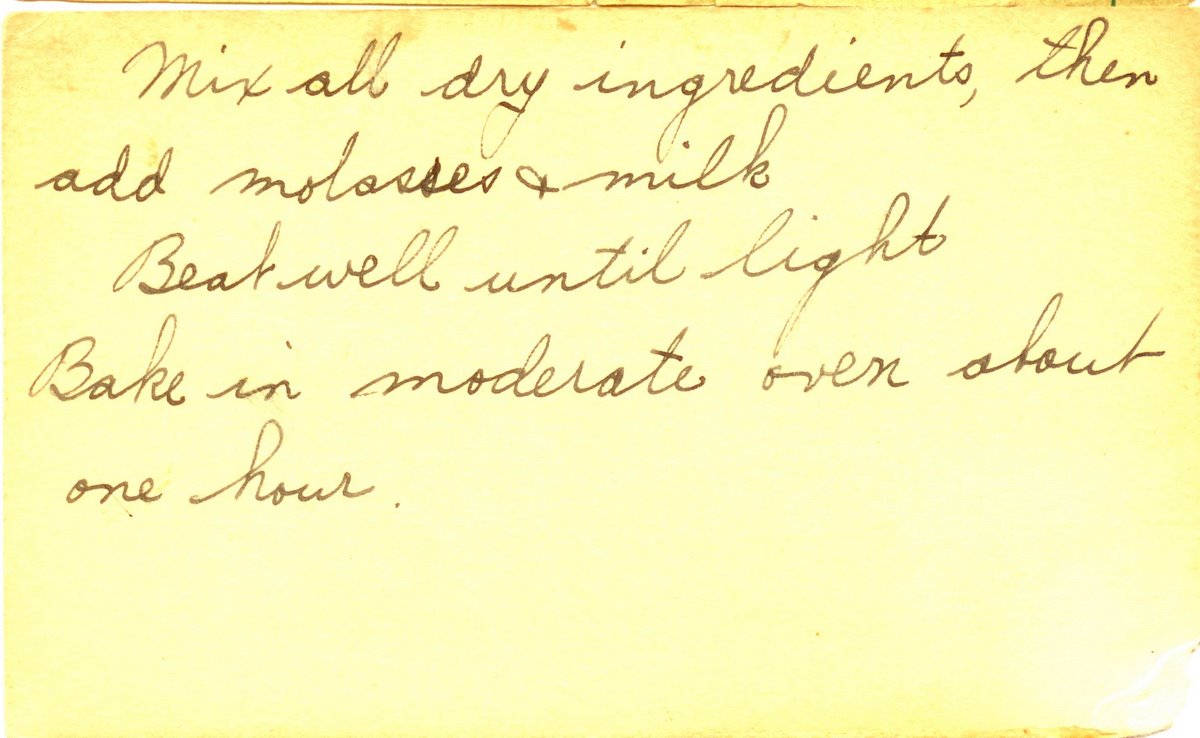 Mix all dry ingredients, then
add molasses & milk
Beat well until light
Bake in moderate oven about
one hour.